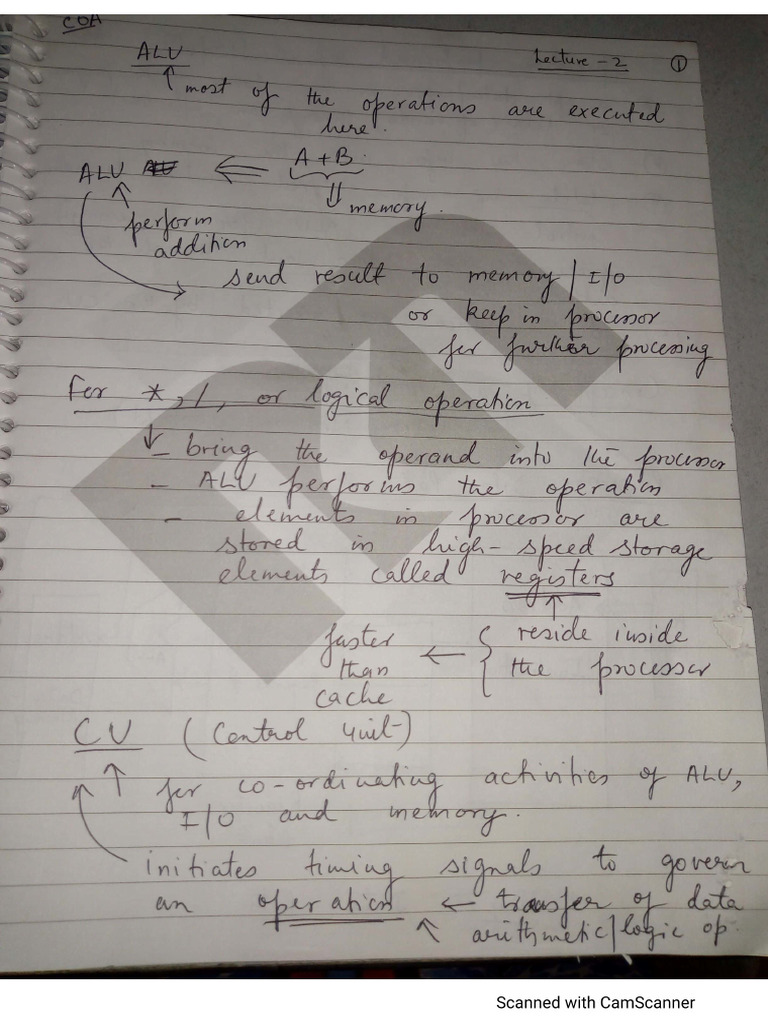 COA
ALU
Lecture - 2 ①
↑ most of the operations are executed
here.
ALU ⇐ A + B.
⇓ memory.
↑ perform
addition
send result to memory / I/O
or keep in processor
for further processing
For *, /, or logical operation
↓ - bring the operand into the processor
- ALU performs the operation
- elements in processor are
stored in high-speed storage
elements called registers
↑
faster ← { reside inside
than the processor
cache
CU (Control Unit)
↑ for co-ordinating activities of ALU,
I/O and memory.
initiates timing signals to govern
an operation ← transfer of data
↑ arithmetic/logic op.
Scanned with CamScanner